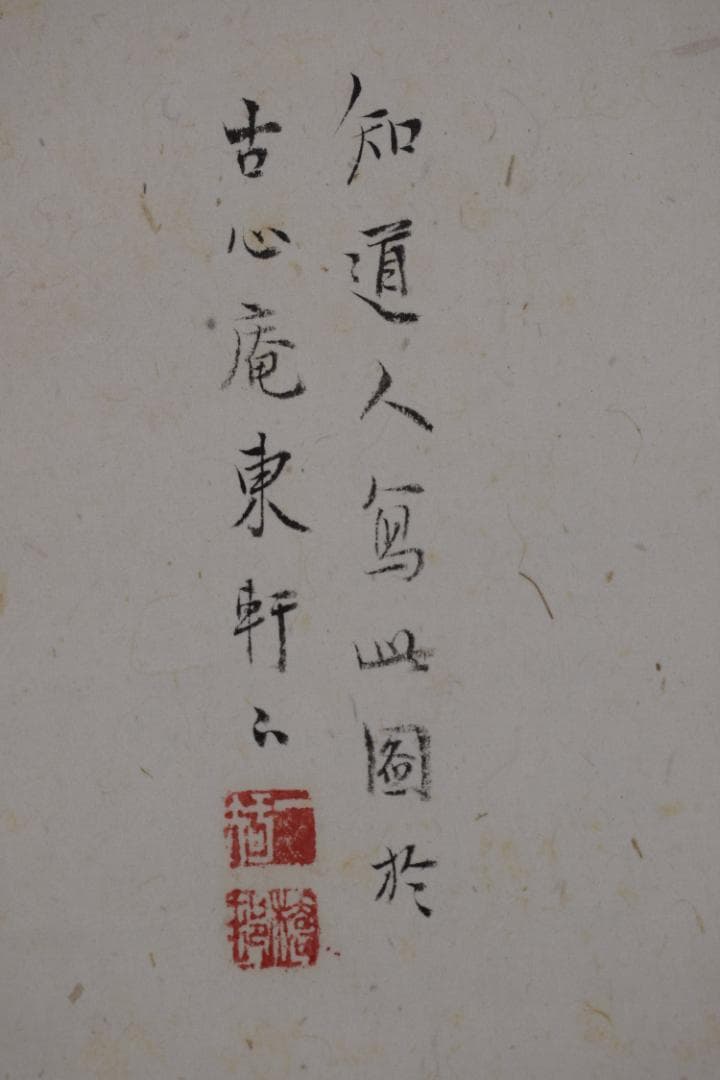 知道人寫此圖於
古心庵東軒下